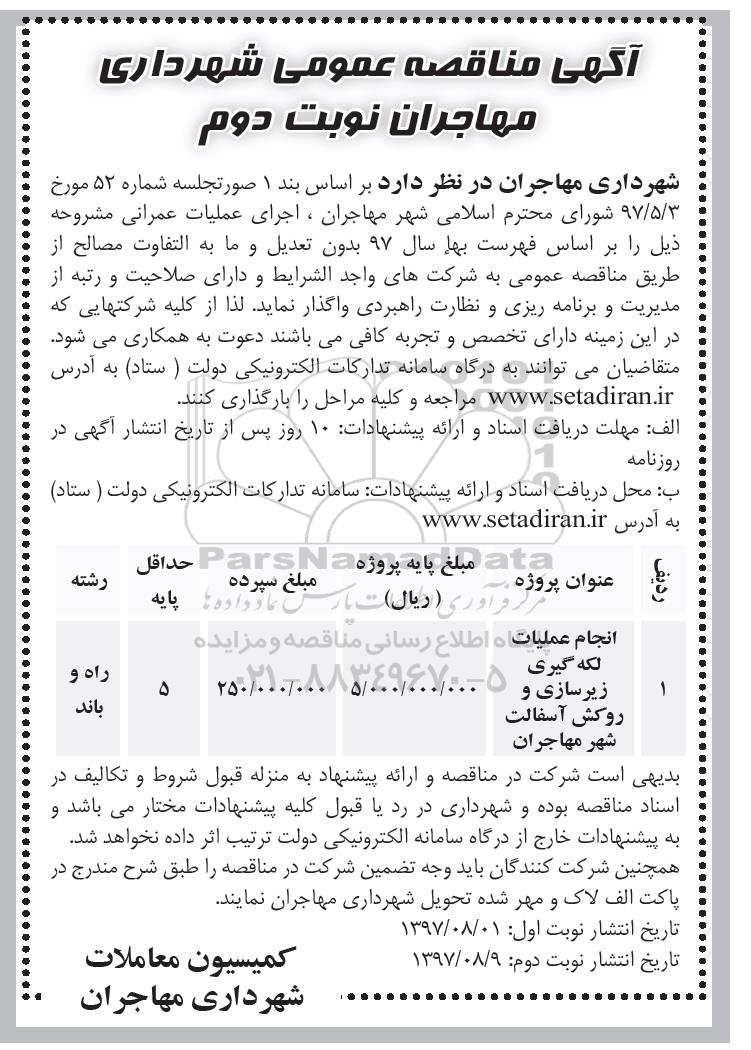 آگهی مناقصه عمومی شهرداری
مهاجران نوبت دوم
شهرداری مهاجران در نظر دارد بر اساس بند ۱ صورتجلسه شماره ۵۲ مورخ
۹۷/۵/۳ شورای محترم اسلامی شهر مهاجران ، اجرای عملیات عمرانی مشروحه
ذیل را بر اساس فهرست بهاء سال ۹۷ بدون تعدیل و ما به التفاوت مصالح از
طریق مناقصه عمومی به شرکت های واجد الشرایط و دارای صلاحیت و رتبه از
مدیریت و برنامه ریزی و نظارت راهبردی واگذار نماید. لذا از کلیه شرکتهایی که
در این زمینه دارای تخصص و تجربه کافی می باشند دعوت به همکاری می شود.
متقاضیان می توانند به درگاه سامانه تدارکات الکترونیکی دولت ( ستاد) به آدرس
www.setadiran.ir مراجعه و کلیه مراحل را بارگذاری کنند.
الف: مهلت دریافت اسناد و ارائه پیشنهادات: ۱۰ روز پس از تاریخ انتشار آگهی در
روزنامه
ب: محل دریافت اسناد و ارائه پیشنهادات: سامانه تدارکات الکترونیکی دولت ( ستاد)
به آدرس www.setadiran.ir
ParsNamadData
مرکز فرآوری اطلاعات پارس نماد داده ها
ردیف
عنوان پروژه
مبلغ پایه پروژه
( ریال)
مبلغ سپرده
حداقل
پایه
رشته
پایگاه اطلاع رسانی مناقصه و مزایده
۰۲۱-۸۸۳۴۹۶۷۰-۵
۱
انجام عملیات
لکه گیری
زیرسازی و
روکش آسفالت
شهر مهاجران
۵/۰۰۰/۰۰۰/۰۰۰
۲۵۰/۰۰۰/۰۰۰
۵
راه و
باند
بدیهی است شرکت در مناقصه و ارائه پیشنهاد به منزله قبول شروط و تکالیف در
اسناد مناقصه بوده و شهرداری در رد یا قبول کلیه پیشنهادات مختار می باشد و
به پیشنهادات خارج از درگاه سامانه الکترونیکی دولت ترتیب اثر داده نخواهد شد.
همچنین شرکت کنندگان باید وجه تضمین شرکت در مناقصه را طبق شرح مندرج در
پاکت الف لاک و مهر شده تحویل شهرداری مهاجران نمایند.
تاریخ انتشار نوبت اول: ۱۳۹۷/۰۸/۰۱
تاریخ انتشار نوبت دوم: ۱۳۹۷/۰۸/۹
کمیسیون معاملات
شهرداری مهاجران